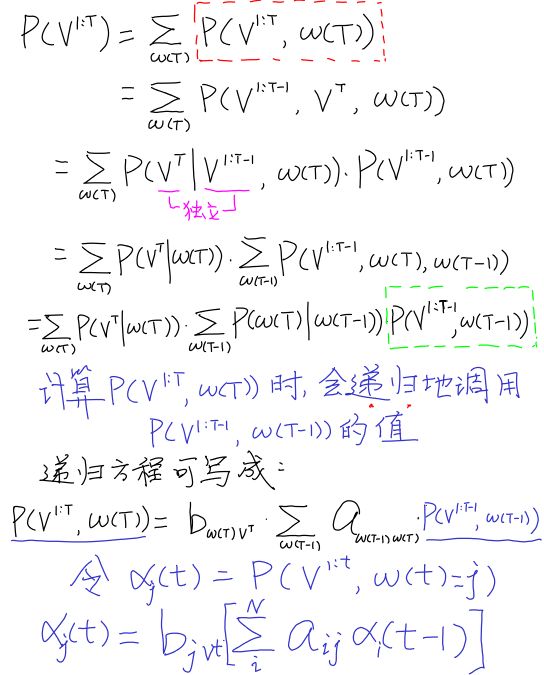 P(V^{1:T}) = ∑_{ω(T)} P(V^{1:T}, ω(T))
= ∑_{ω(T)} P(V^{1:T-1}, V^T, ω(T))
= ∑_{ω(T)} P(V^T | V^{1:T-1}, ω(T)) · P(V^{1:T-1}, ω(T))
独立
= ∑_{ω(T)} P(V^T|ω(T)) · ∑_{ω(T-1)} P(V^{1:T-1}, ω(T), ω(T-1))
= ∑_{ω(T)} P(V^T|ω(T)) · ∑_{ω(T-1)} P(ω(T)|ω(T-1)) P(V^{1:T-1}, ω(T-1))
计算 P(V^{1:T}, ω(T)) 时, 会递归地调用
P(V^{1:T-1}, ω(T-1)) 的值
递归方程可写成:
P(V^{1:T}, ω(T)) = b_{ω(T)V^T} · ∑_{ω(T-1)} a_{ω(T-1)ω(T)} · P(V^{1:T-1}, ω(T-1))
令 α_j(t) = P(V^{1:t}, ω(t)=j)
α_j(t) = b_{jv^t} [∑_i^N a_{ij} α_i(t-1)]